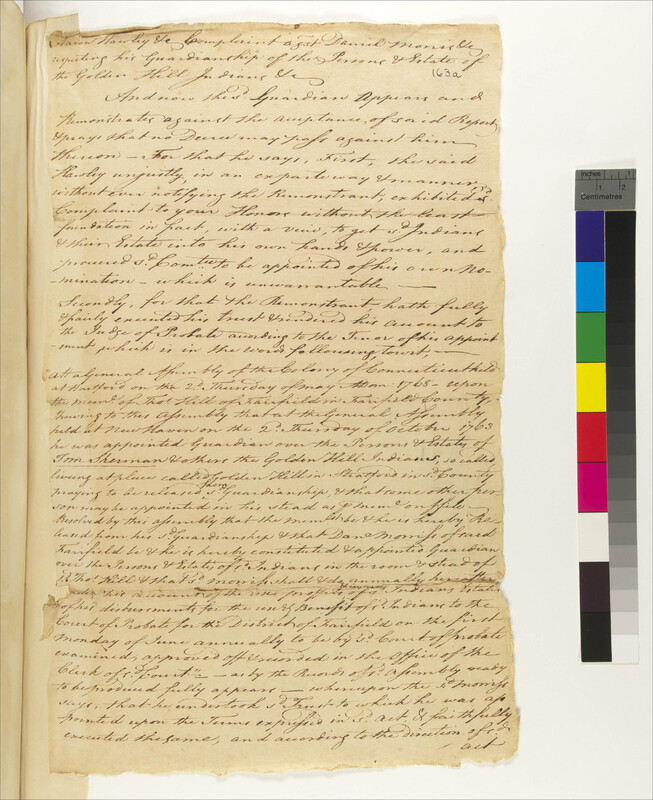 Aaron Hawley &c Complaint agst Daniel Morris &c
respecting his Guardianship of the Persons & Estate of
the Golden Hill Indians &c
163a
And now the sd Guardian Appears and
Remonstrates against the acceptance of said Report
& prays that no Decree may pass against him
thereon – For that he says, First, the said
Hawley unjustly, in an exparte way & manner
without ever notifying the Remonstrant, exhibited sd
Complaint to your Honors without the least
foundation in fact, with a view to get sd Indians
& their Estate into his own hands & power, and
procured sd Comtee to be appointed of his own No-
-mination – which is unwarrantable —
Secondly, for that the Remonstrant hath fully
& fairly executed his trust & rendered his account to
the Judge of Probate according to the Tenor of his appoint
-ment which is in the words following, towit, —
At a General Assembly of the Colony of Connecticut held
at Hartford on the 2d Thursday of May Anno 1768 – upon
the meml of Thos Hill of Fairfield in Fairfield County,
shewing to this Assembly that at the General Assembly
held at New Haven on the 2d Thursday of October 1763
he was appointed Guardian over the Persons & Estate of
Tom Sherman & others the Golden Hill Indians, so called
living at place called Golden Hill in Stratford in sd County
praying to be released from sd Guardianship, & that some other per-
son may be appointed in his stead as pr meml on file –
Resolved by this Assembly that the memlst be & he is hereby Re-
leased from his sd Guardianship & that Danl Morriss of said
Fairfield be & he is hereby constituted & appointed Guardian
over the Persons & Estate of sd Indians in the room & stead of
sd Thos Hill & that sd Morriss shall & do annually hereafter
his account of the use profits of sd Indians Estate
of his disbursments for the use & Benefit of sd Indians to the
Court of Probate for the District of Fairfield on the first
Monday of June annually to be by sd Court of probate
examined, approved off & recorded in the Office of the
Clerk of sd Court" – as by the Records of sd Assembly ready
to be produced fully appears – whereupon the sd Morriss
says, that he undertook sd Trust to which he was ap
pointed upon the Terms expressed in sd Act, & faithfully
executed the same, and according to the direction of sd
act
Inches
1
2
Centimetres